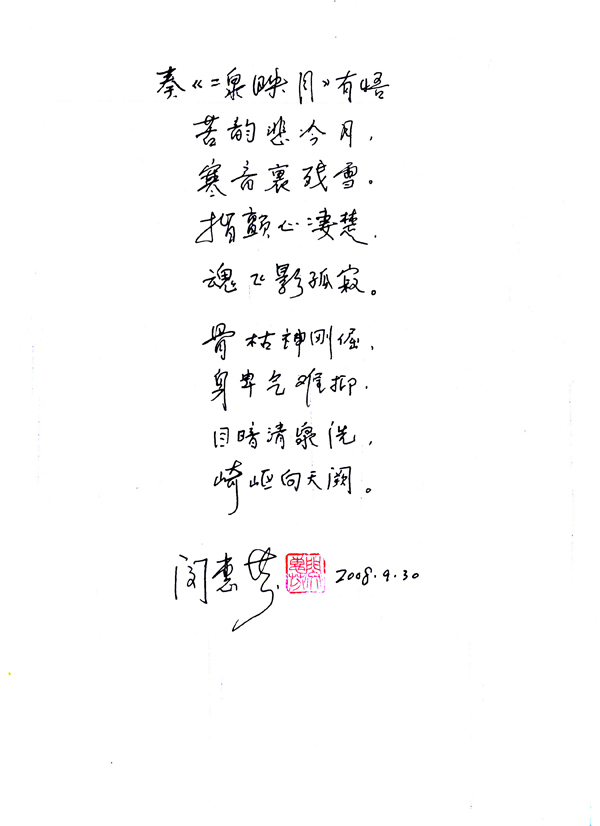 奏《二泉映月》有悟
苦韵悲今月，
寒音裹残雪。
指颤心凄楚．
魂飞影孤寂。
骨枯神刚倔，
身卑气难抑．
目暗清泉洗，
崎岖向天阙。
闵惠芬 2008.9.30